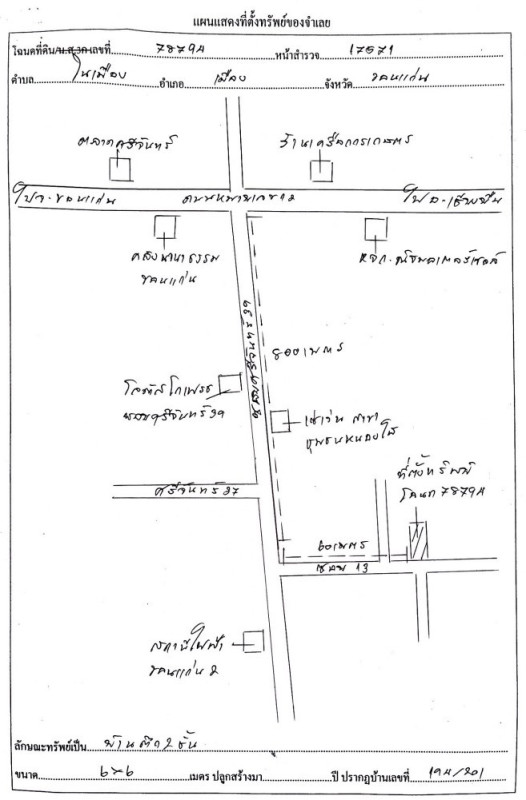 แผนแสดงที่ตั้งทรัพย์ของจำเลย
โฉนดที่ดิน/น.ส.3ก เลขที่ 78794 หน้าสำรวจ 17571
ตำบล ในเมือง อำเภอ เมือง จังหวัด ขอนแก่น
ตลาดศรีจันทร์
ร้านเครื่อง
ไป อ.ขอนแก่น ถนนหมายเลข 12 ไป อ.เชียงยืน
คลังนานาธรรม
ขอนแก่น
หจก.
800 เมตร
โลตัสโกเฟรช
ซอยศรีจันทร์ 39
เซเว่น สาขา
ชุมชนหนองใส
ที่ตั้งทรัพย์
โฉนด 78794
ศรีจันทร์ 37
60 เมตร
ซอย 13
สถานีไฟฟ้า
ขอนแก่น 2
ลักษณะทรัพย์เป็น บ้านตึก 2 ชั้น
ขนาด 6x6 เมตร ปลูกสร้างมา ปี ปรากฏบ้านเลขที่ 194/201